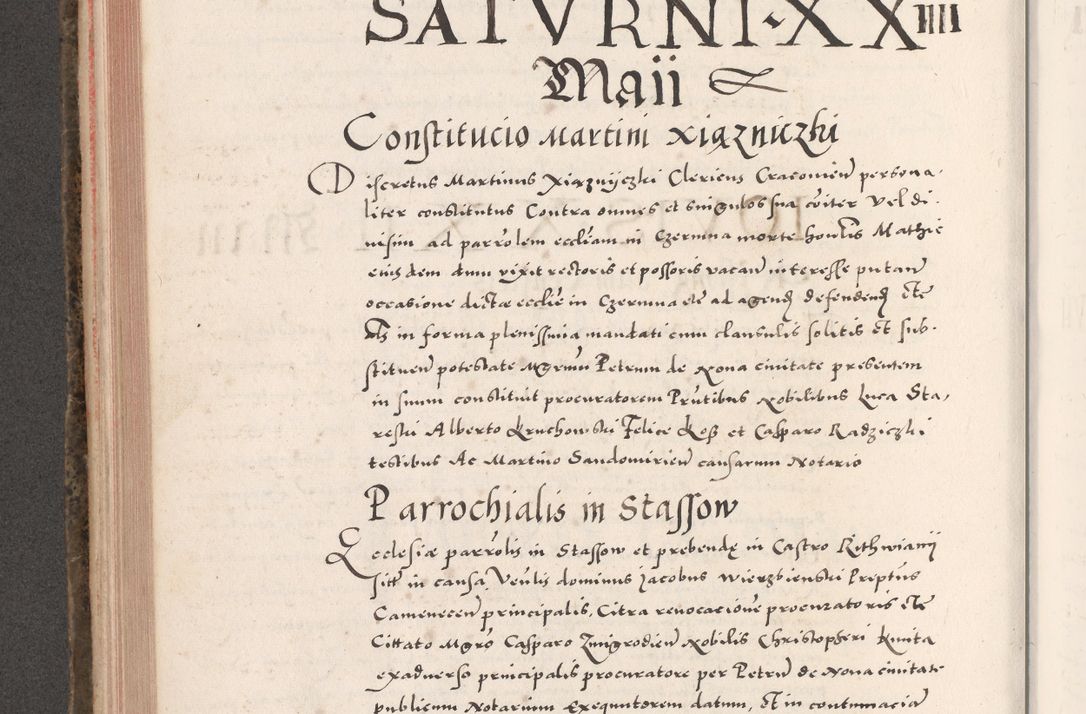 SATVRNI·XXIIII
Maii
Constitucio Martini Xiązniczki
Discretus Martinus Xiąznijczki Clericus Cracovien̄ persona.
liter constitutus Contra omnes et singulos sua cōiter vel di.
uisim ad parrōlem eccliam in Czermna morte honilis Mathie
eiusdem dum vixit rectoris et possoris vacan̄ interesse putan̄
occasione dictæ ecclie in Czermna etc̄ ad agend defendend etc̄
in forma plenissima mandati cum clausulis solitis et sub.
stituen̄ potestate Mgrum Petrum de Nona ciuitate presentem
in suum constituit procuratorem Prūtibus Nobilibus Luca Sta,
reski Alberto Kruchowski Felice Koss et Casparo Radziczki
testibus Ac Martino Sandomirien̄ causarum Notario
Parrochialis in Stassow
Ecclesiæ parrōlis in Stassow et prebendę in Castro Rithwianij
sitt in causa Venlis dominus Jacobus Wierzbienski Preptus
Camenecen̄ principalis, Citra reuocacione procuratoris etc̄
Cittato Mgro Casparo Zmigrodien̄ Nobilis Christopheri Kmita
exaduerso principalis procuratore per Petru de Noua ciuitate
publicum Notarium Exequutorem datum, Et in contumacia